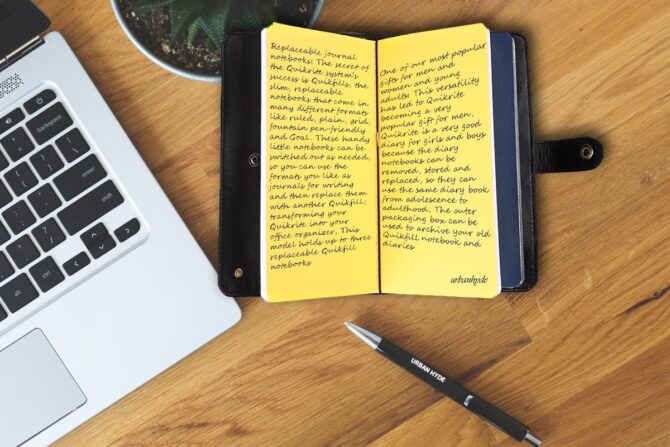 Replaceable journal
notebooks: The secret of
the Quikrite system's
success is Quikfills, the
slim, replaceable
notebooks that come in
many different formats
like ruled, plain, grid,
fountain pen-friendly
and Goal. These handy
little notebooks can be
switched out as needed,
so you can use the
formats you like as
journals for writing
and then replace them
with another Quikfill;
transforming your
Quikrite into your
office organizer. This
model holds up to three
replaceable Quikfill
notebooks
One of our most popular
gifts for men and
women and young
adults. This versatility
has led to Quikrite
becoming a very
popular gift for men.
Quikrite is a very good
diary for girls and boys
because the diary
notebooks can be
removed, stored and
replaced, so they can
use the same diary book
from adolescence to
adulthood. The outer
packaging box can be
used to archive your old
Quikfill notebook and
diaries
urbanhyde
URBAN HYDE
backspace
enter
shift
ctrl
alt